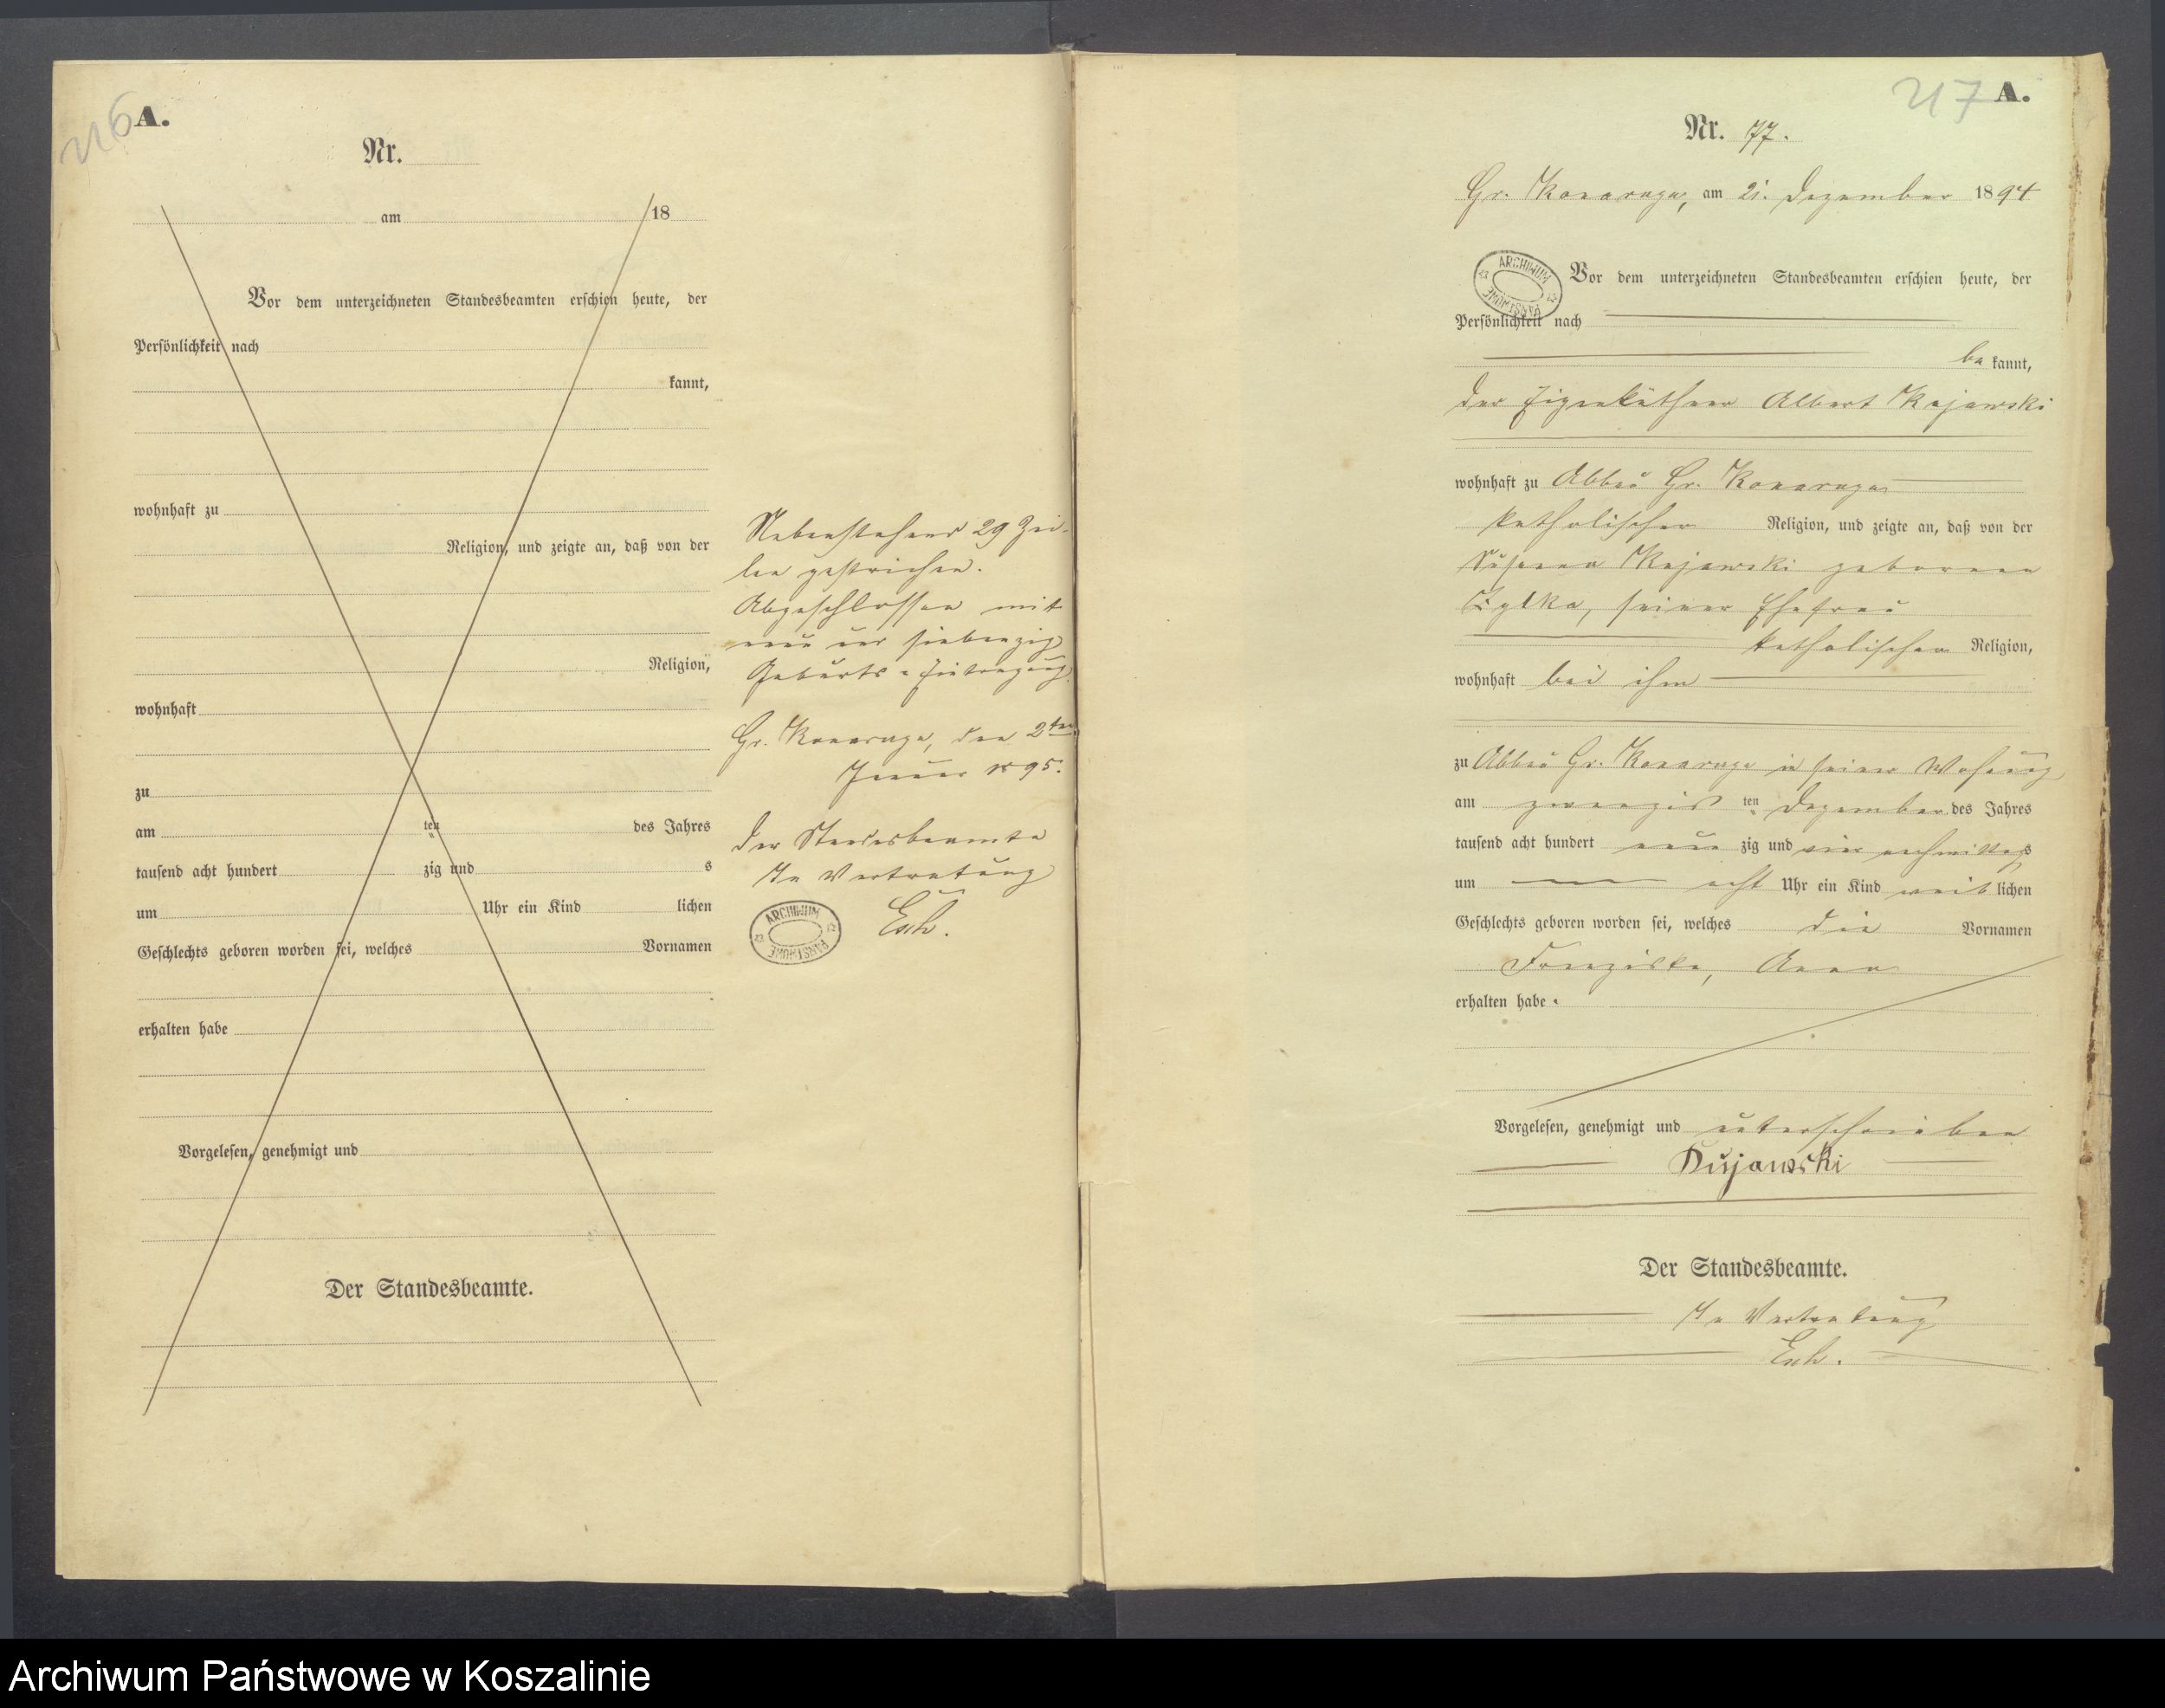 216
A.
Nr.
am 18
Vor dem unterzeichneten Standesbeamten erschien heute, der
Persönlichkeit nach
kannt,
wohnhaft zu
Religion, und zeigte an, daß von der
Religion,
wohnhaft
zu
am ten des Jahres
tausend acht hundert zig und s
um Uhr ein Kind lichen
Geschlechts geboren worden sei, welches Vornamen
erhalten habe
Vorgelesen, genehmigt und
Der Standesbeamte.
Nebenstehend 29 Zei-
len gestrichen.
Abgeschlossen mit
siebenzig
Geburts-Eintragung
Gr. Konarczyn, den 2ten
Januar 1895.
Der Standesbeamte
In Vertretung
ARCHIWUM PAŃSTWOWE
217
A.
Nr. 77.
Gr. am 21. Dezember 1894
ARCHIWUM PAŃSTWOWE
Vor dem unterzeichneten Standesbeamten erschien heute, der
Persönlichkeit nach
be kannt,
der Eigenkäthner Albert Kujawski
wohnhaft zu Abbau Gr.
katholischer Religion, und zeigte an, daß von der
Susanna Kujawski geborenen
seiner Ehefrau
katholischer Religion,
wohnhaft bei ihm
zu Abbau Gr. in seiner Wohnung
am zwanzigsten ten Dezember des Jahres
tausend acht hundert neun zig und vier nachmittags
um acht Uhr ein Kind weib lichen
Geschlechts geboren worden sei, welches die Vornamen
Franziska, Anna
erhalten habe.
Vorgelesen, genehmigt und unterschrieben
Kujawski
Der Standesbeamte.
In Vertretung
Archiwum Państwowe w Koszalinie